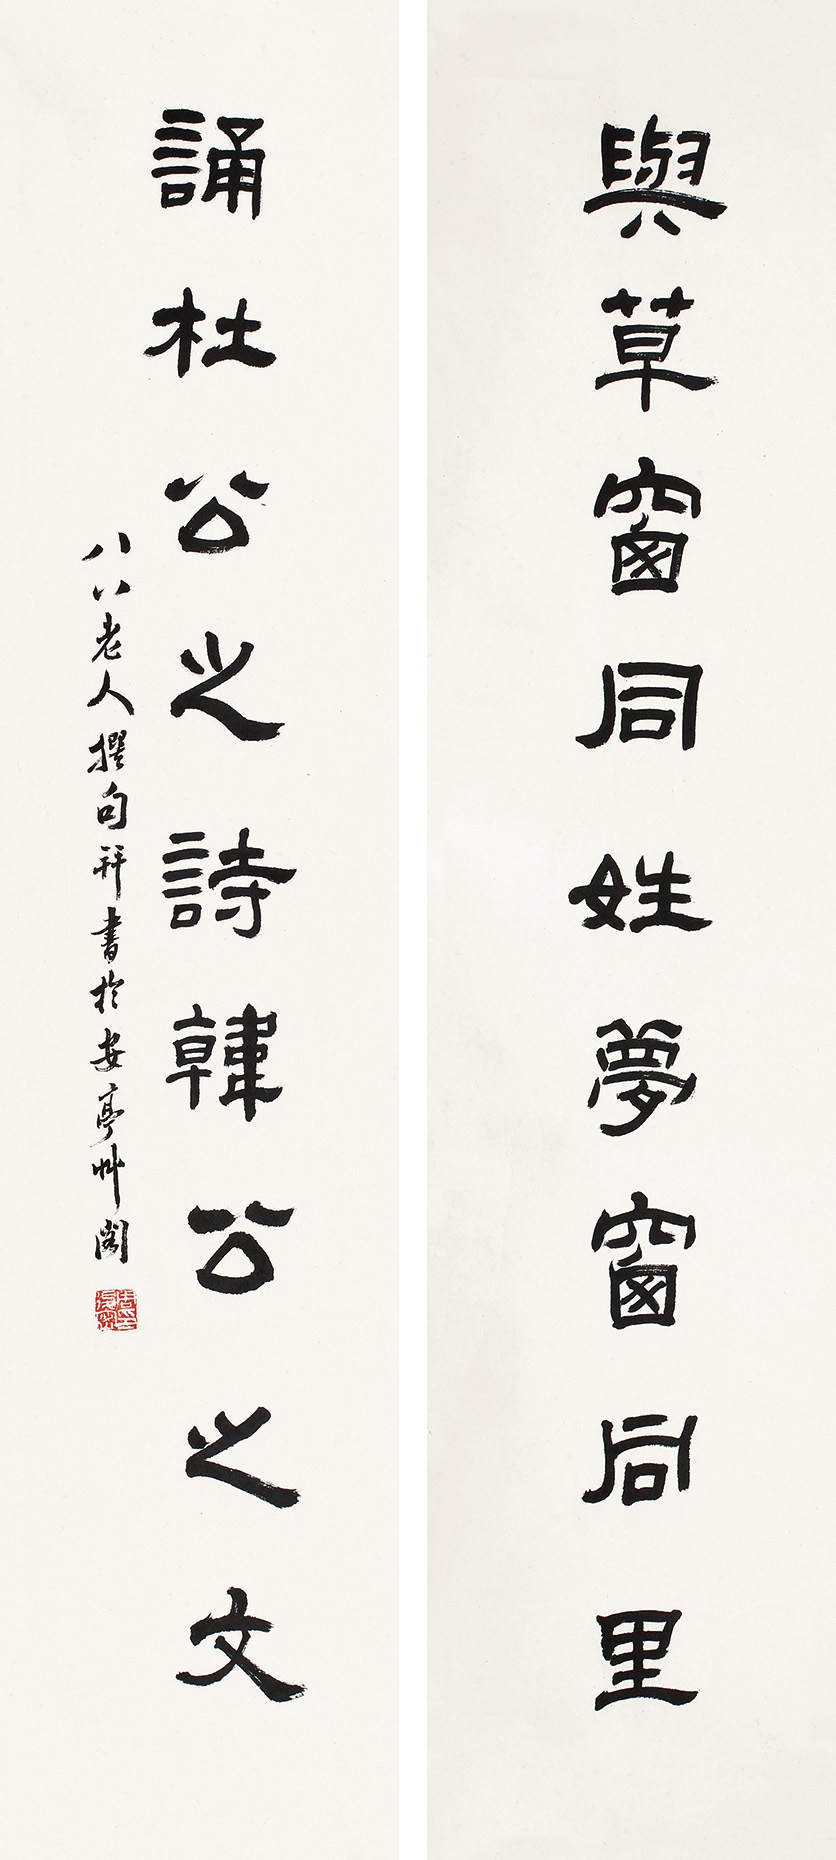 與草窗同姓夢窗同里
誦杜公之詩韓公之文
八八老人撰句并書於安亭艸閣